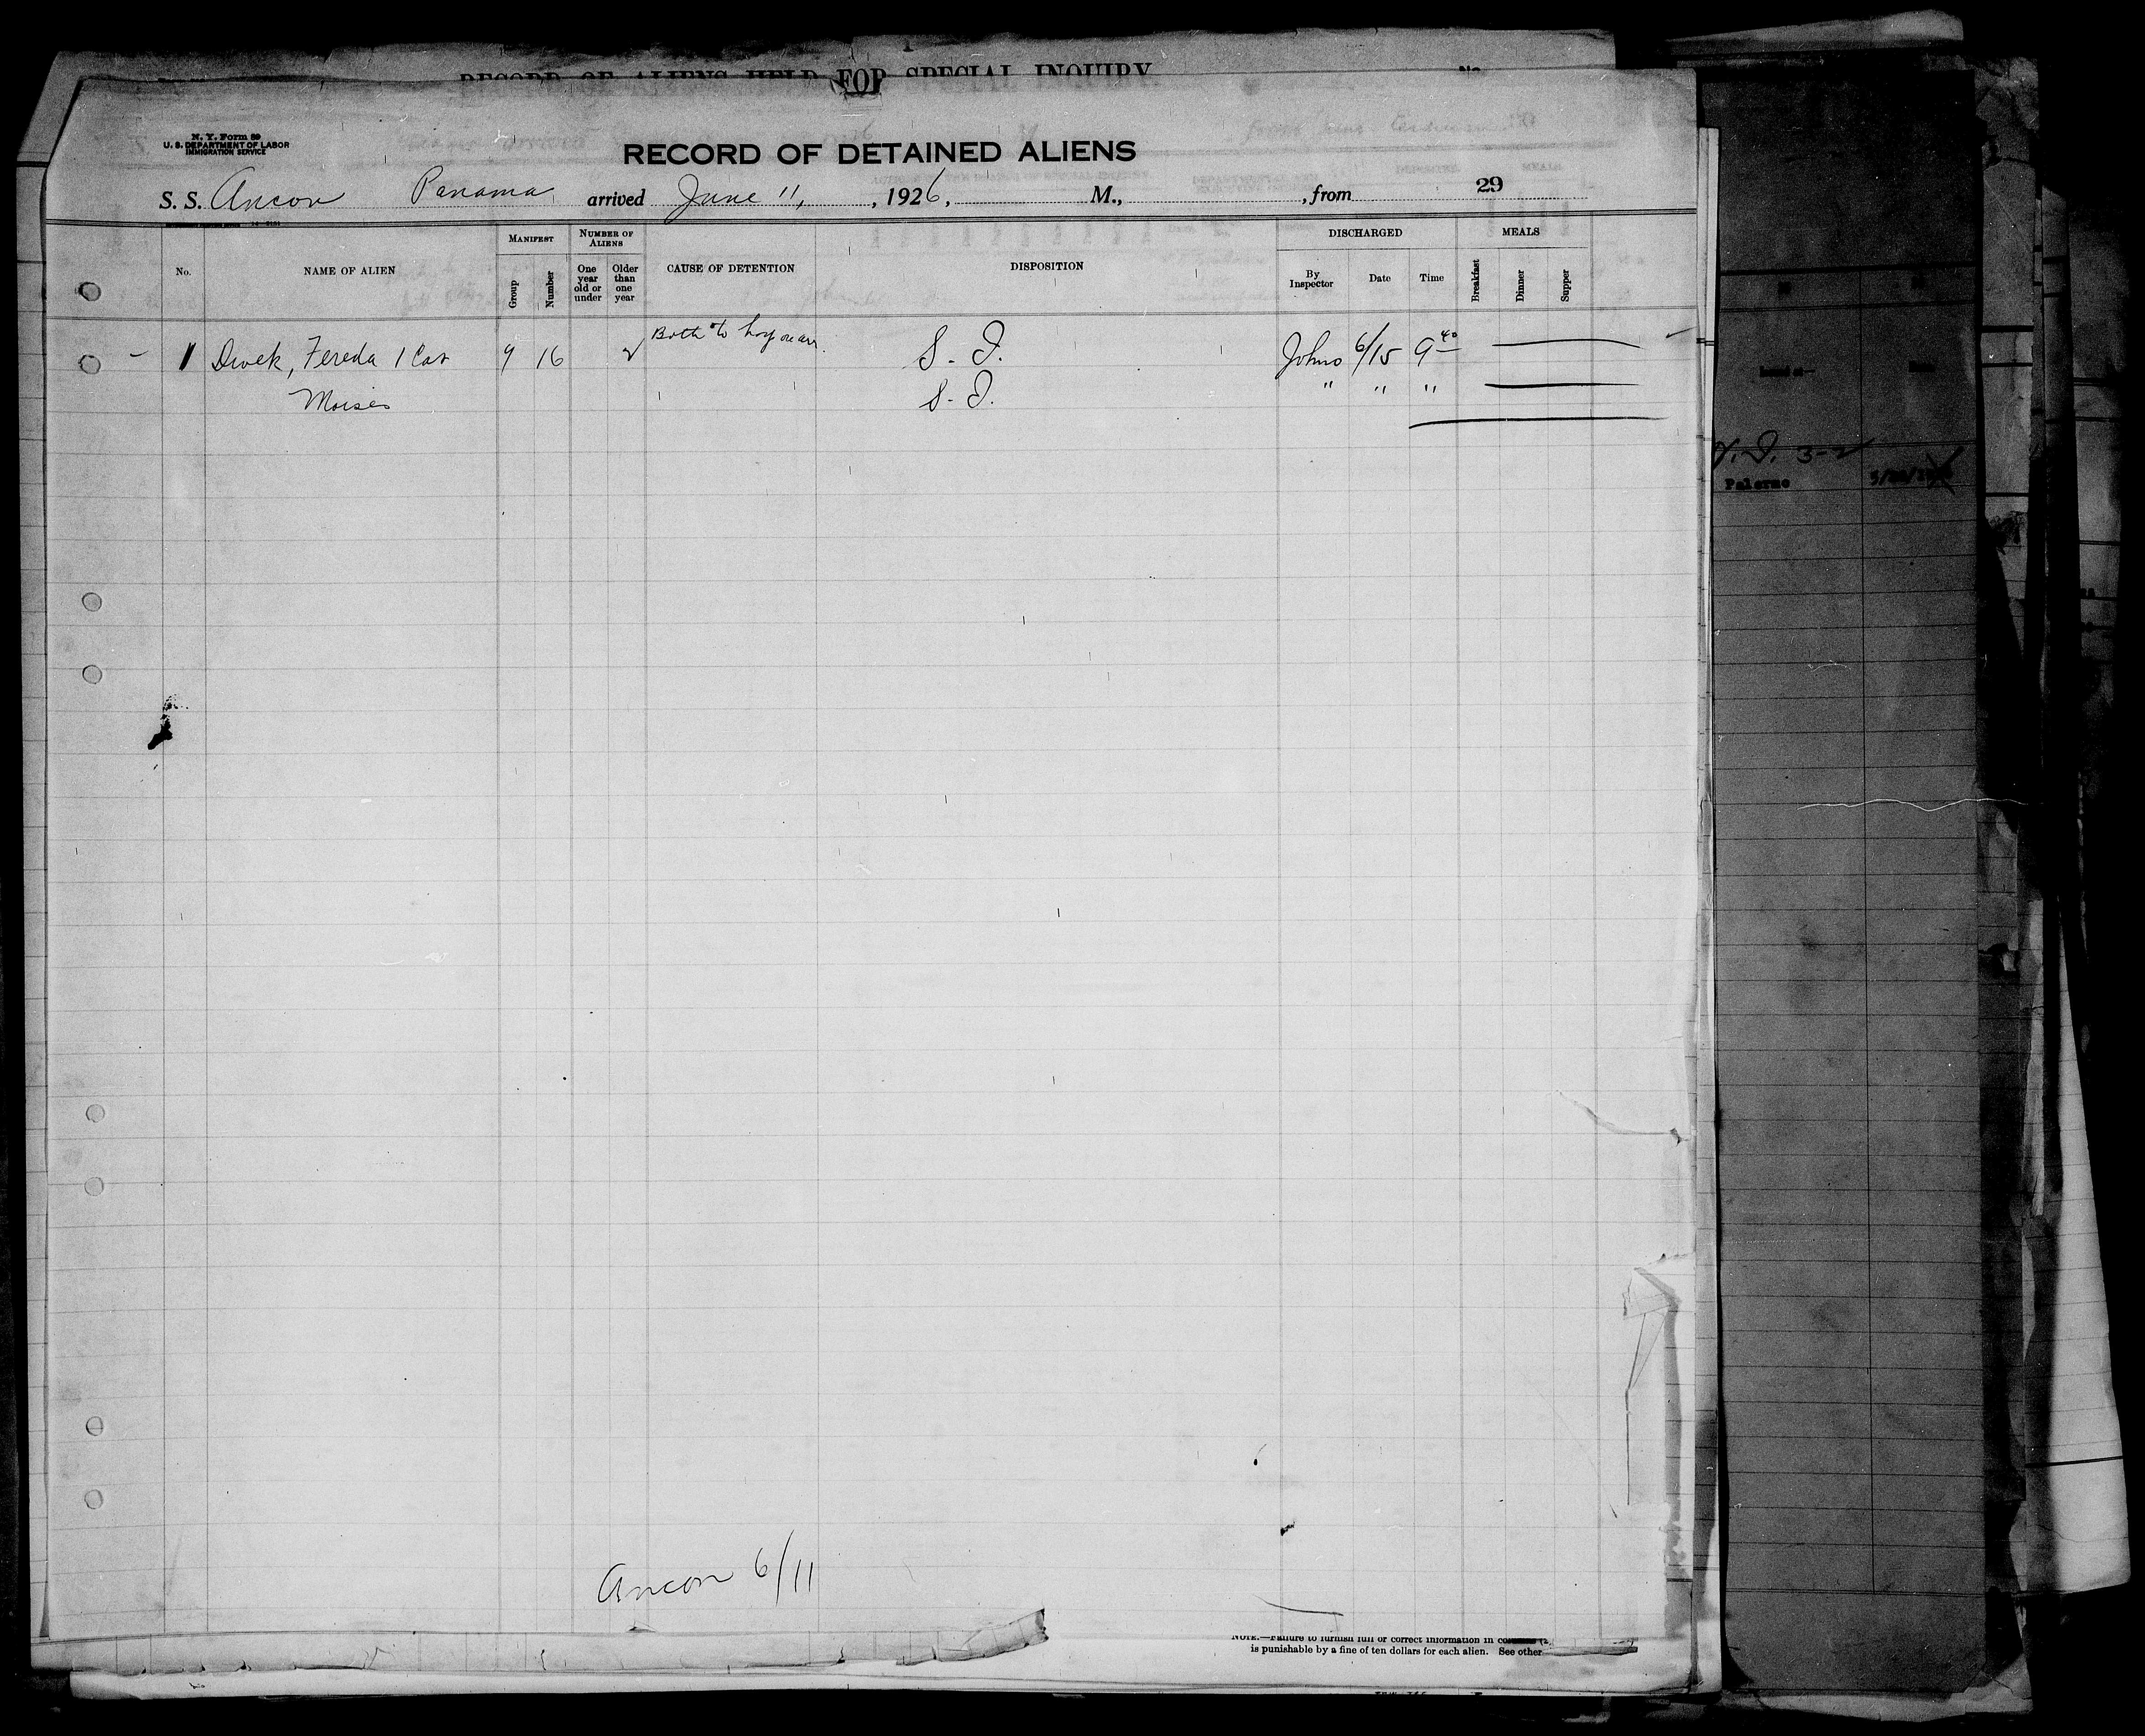 RECORD OF ALIENS HELD FOR SPECIAL INQUIRY.
N. Y. Form 89
U. S. DEPARTMENT OF LABOR
IMMIGRATION SERVICE
RECORD OF DETAINED ALIENS
S. S. Ancon Panama arrived June 11, , 1926, M., , from 29
MANIFEST NUMBER OF ALIENS DISCHARGED MEALS
No. NAME OF ALIEN Group Number One year old or under Older than one year CAUSE OF DETENTION DISPOSITION By Inspector Date Time Breakfast Dinner Supper
1 Dwek, Fereda 1 Cat 9 16 2 Both to hosp on arr. S. I. Johns 6/15 9 40
Moises S. I. " " "
3-2
Palermo
Ancon 6/11
NOTE.—Failure to furnish full or correct information in
is punishable by a fine of ten dollars for each alien. See other